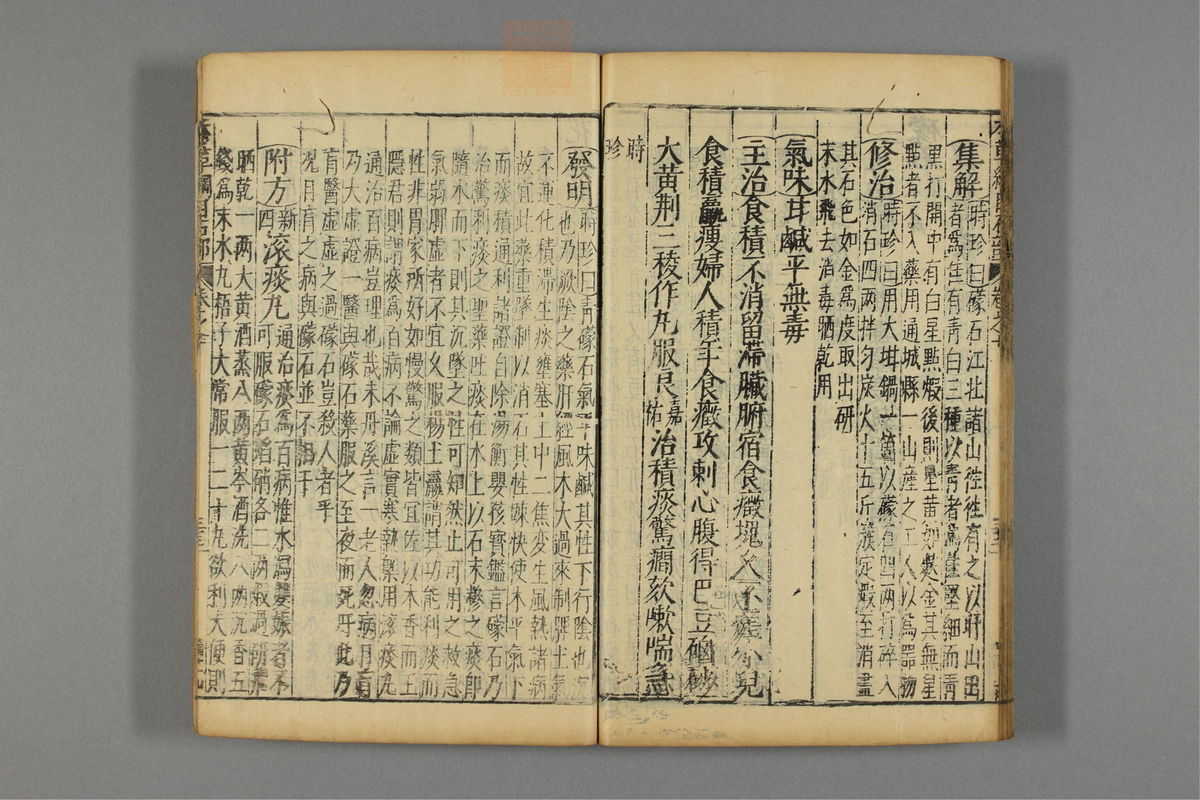 集解時珍曰礞石江北諸山徃徃有之以旴山出
者爲佳有青白二種以青者爲佳堅細而青
黑打開中有白星點煅後則星黄如麩金其無星
點者不入藥用通城縣一山産之工人以爲器物
修治時珍曰用大坩鍋一箇以礞石四兩打碎入
消石四兩拌匀炭火十五斤簇定煅至消盡
其石色如金爲度取出研
末水飛去消毒晒乾用
氣味甘鹹平無毒
主治食積不消留滯臟腑宿食癥塊久不瘥小兒
食積羸瘦婦人積年食癥攻刺心腹得巴豆硇砂
大黄荆三稜作丸服良嘉祐治積痰驚癇欬嗽喘急
時珍
發明時珍曰青礞石氣平味鹹其性下行陰也沉
也乃厥陰之藥肝經風木大過來制脾土氣
不運化積滯生痰壅塞上中二焦变生風熱諸病
故宜此藥重墜制以消石其性踈快使木平氣下
而痰積通利諸證自除湯衡嬰孩寳鑑言礞石乃
治驚利痰之聖藥吐痰在水上以石末糝之痰即
隨水而下則其沉墜之性可知然止可用之救急
氣弱脾虚者不宜久服楊士瀛謂其功能利痰而
性非胃家所好如慢驚之類皆宜佐以木香而王
隱君則謂痰爲百病不論虚實寒熱槩用滚痰丸
通治百病豈理也哉朱丹溪言一老人忽病目盲
乃大虚證一醫與礞石藥服之至夜而死吁此乃
盲醫虚虚之過礞石豈殺人者乎
况目盲之病與礞石並不相干
附方新四滚痰丸通治痰爲百病惟水瀉雙娠者不
可服礞石焰硝各二兩煅過研飛
晒乾一兩大黄酒蒸八兩黄芩酒洗八兩沉香五
錢爲末水丸梧子大常服一二十丸欲利大便則